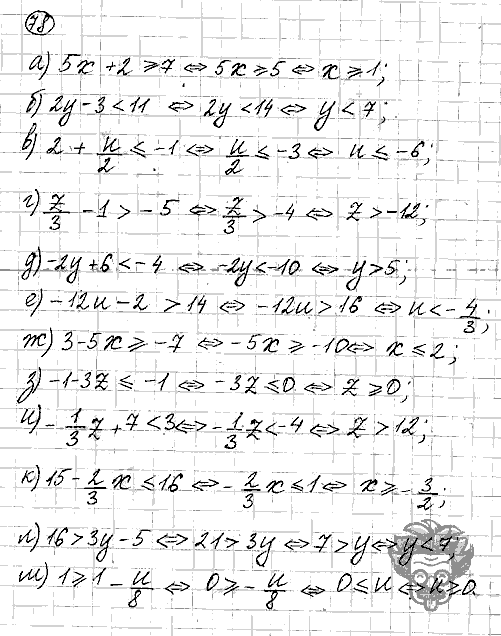 78
а) 5x + 2 ≥ 7 ⇔ 5x ≥ 5 ⇔ x ≥ 1;
б) 2y - 3 < 11 ⇔ 2y < 14 ⇔ y < 7;
в) 2 + u/2 ≤ -1 ⇔ u/2 ≤ -3 ⇔ u ≤ -6;
г) z/3 - 1 > -5 ⇔ z/3 > -4 ⇔ z > -12;
д) -2y + 6 < -4 ⇔ -2y < -10 ⇔ y > 5;
е) -12u - 2 > 14 ⇔ -12u > 16 ⇔ u < -4/3;
ж) 3 - 5x ≥ -7 ⇔ -5x ≥ -10 ⇔ x ≤ 2;
з) -1 - 3z ≤ -1 ⇔ -3z ≤ 0 ⇔ z ≥ 0;
и) -1/3 z + 7 < 3 ⇔ -1/3 z < -4 ⇔ z > 12;
к) 15 - 2/3 x ≤ 16 ⇔ -2/3 x ≤ 1 ⇔ x ≥ -3/2;
л) 16 > 3y - 5 ⇔ 21 > 3y ⇔ 7 > y ⇔ y < 7;
м) 1 ≥ 1 - u/8 ⇔ 0 ≥ -u/8 ⇔ 0 ≤ u ⇔ u ≥ 0